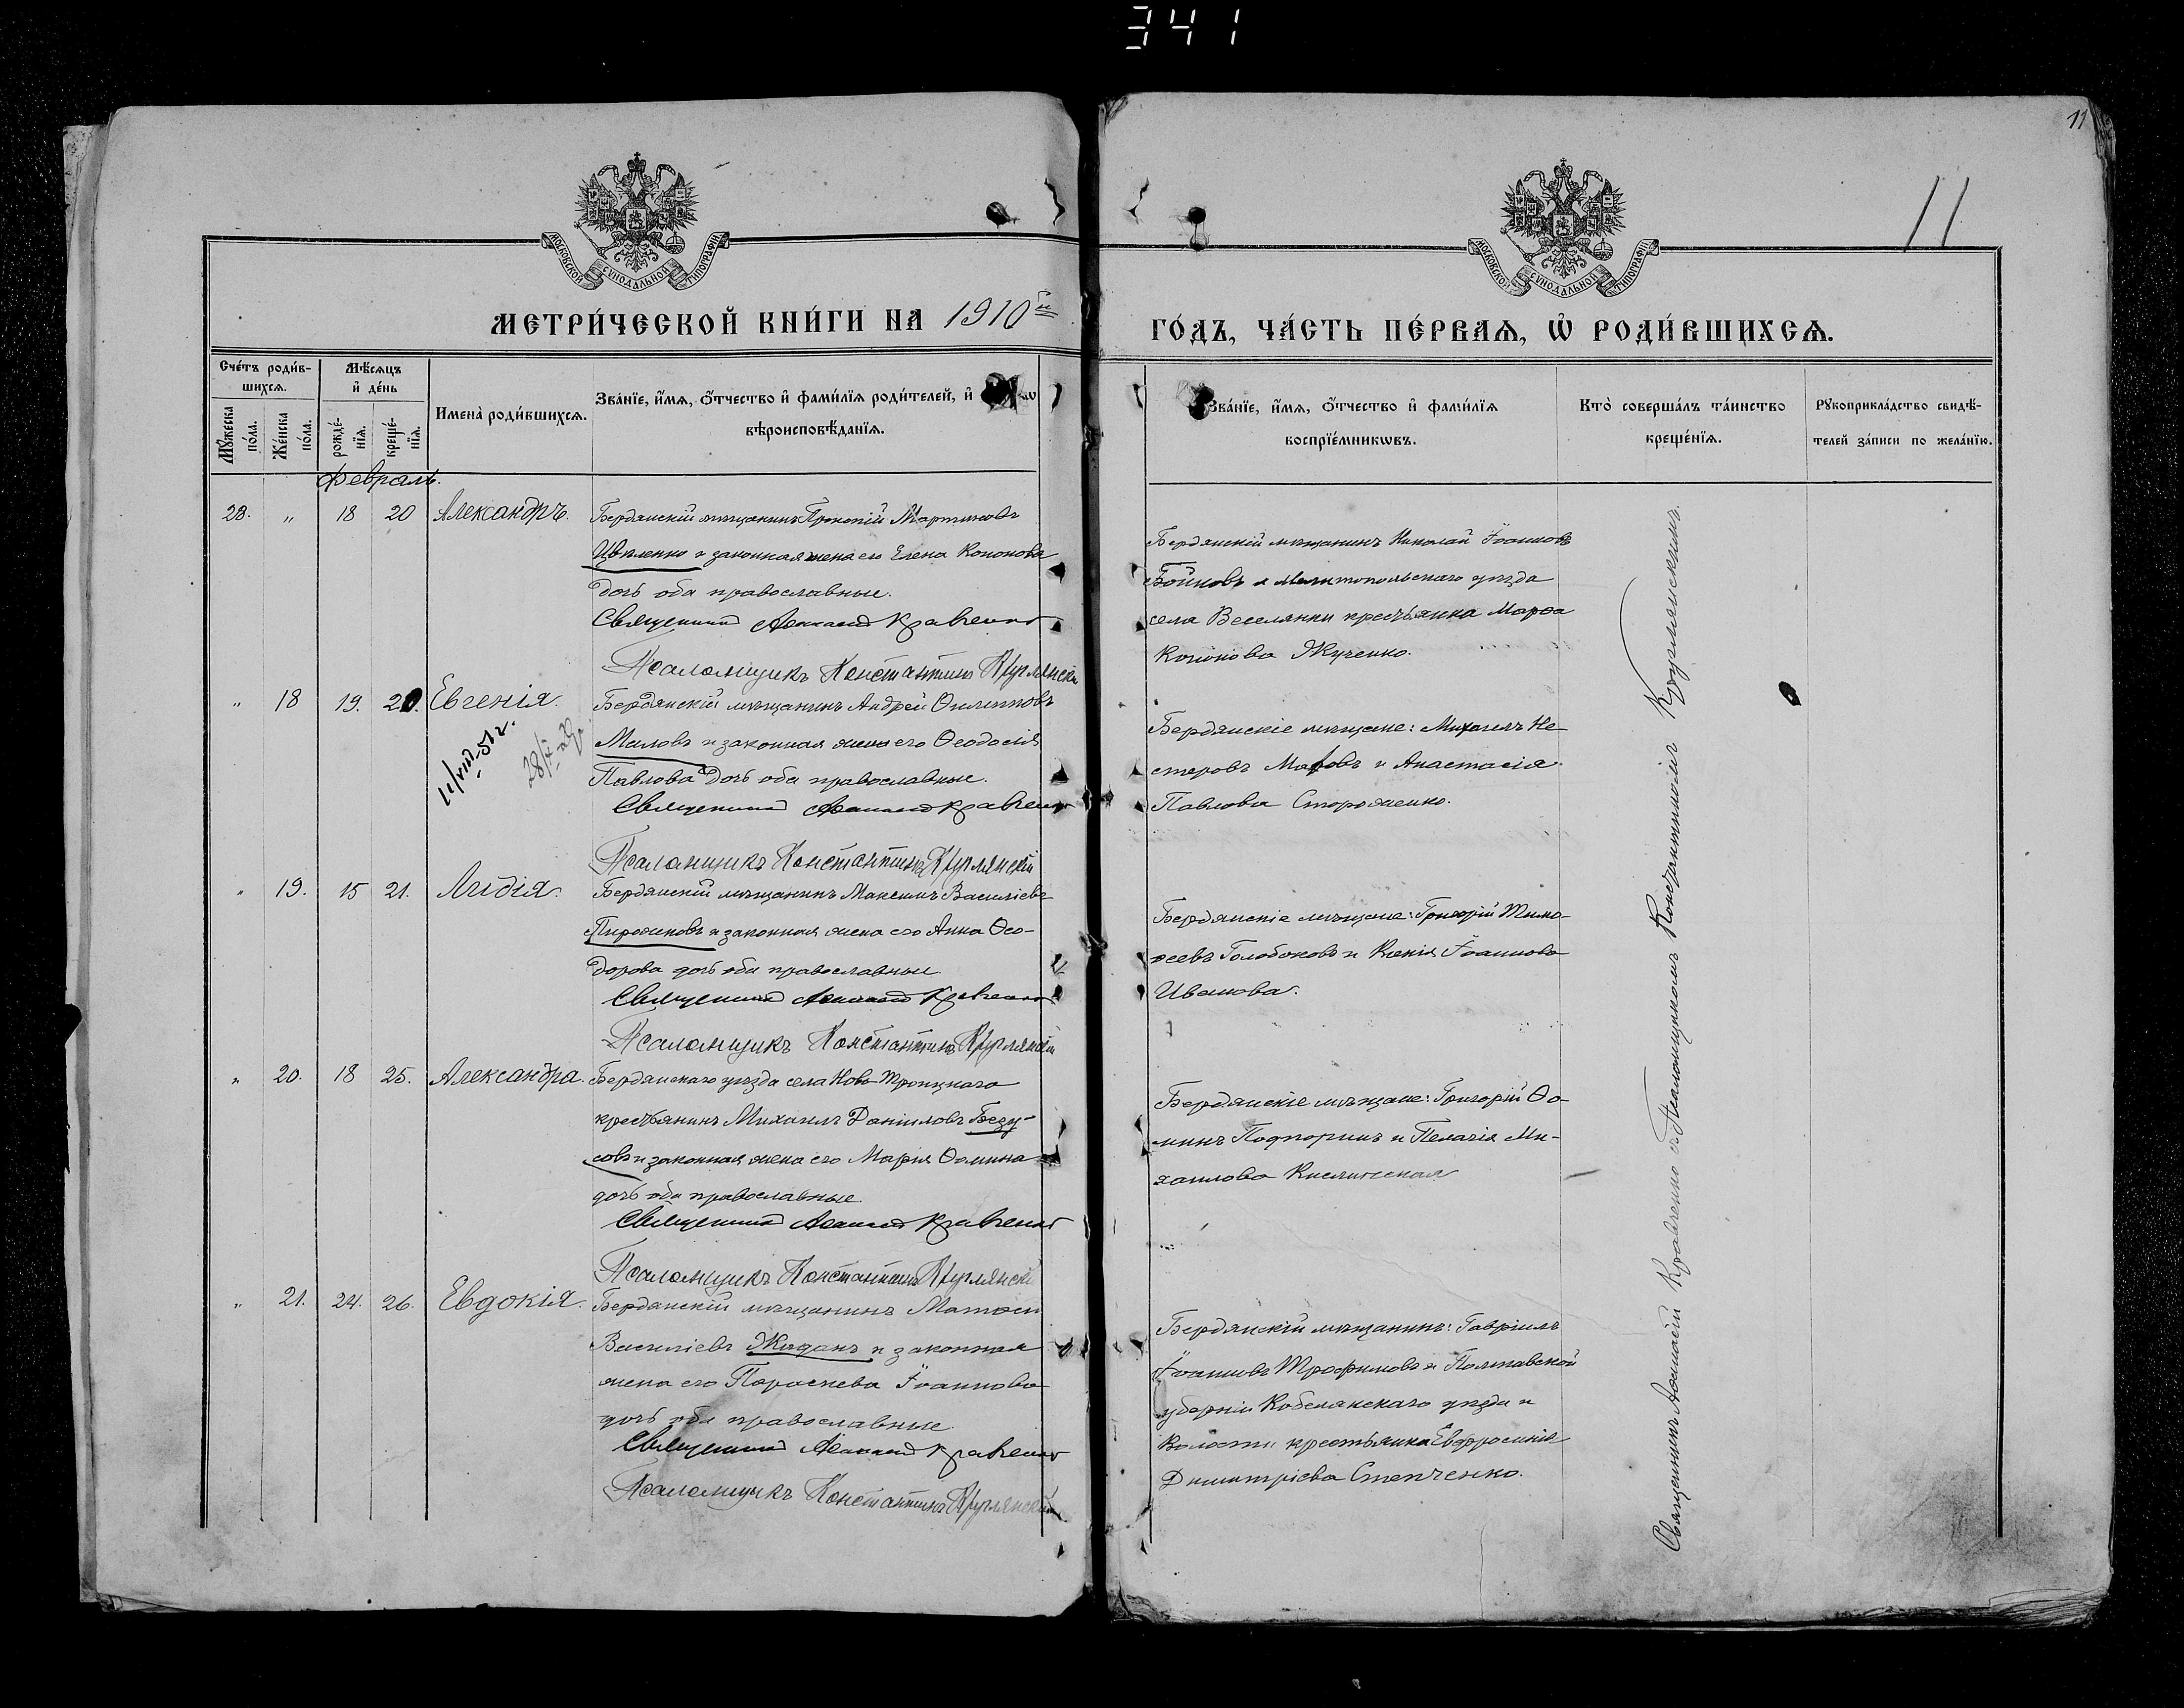 341
11
11
МОСКОВСКОЙ СѴНОДАЛЬНОЙ ТИПОГРАФІИ
МОСКОВСКОЙ СѴНОДАЛЬНОЙ ТИПОГРАФІИ
МЕТРИ́ЧЕСКОЙ КНИ́ГИ НА 1910й
ГО́ДЪ, ЧА́СТЬ ПЕ́РВАѦ, Ѡ҆ РОДИ́ВШИХСѦ.
Сче́тъ роди́в-
шихсѧ.
Мѣ́сѧцъ
и҆ де́нь
Мꙋ́жеска по́ла.
Же́нска по́ла.
рожде́-
нїѧ.
креще́-
нїѧ.
Имена̀ роди́вшихсѧ.
Зва́нїе, и҆́мѧ, ѻ҆́тчество и҆ фами́лїѧ роди́телей, и҆
вѣроисповѣ́данїѧ.
Зва́нїе, и҆́мѧ, ѻ҆́тчество и҆ фами́лїѧ
воспрїе́мникѡвъ.
Кто̀ соверша́лъ та́инство
креще́нїѧ.
Рꙋкоприкла́дство свидѣ́-
телей за́писи по жела́нїю.
Февраль.
28. " 18 20 Александръ. Бердянскій мѣщанинъ Прокопій Мартиновъ
Цвѣленко и законная жена его Елена Кононова
дочь оба православные.
Священник Афанасій Кравченко
Псаломщикъ Константинъ Курлянскій
Бердянскій мѣщанинъ Николай Іоанновъ
Бойковъ и Мелитопольскаго уѣзда
села Веселянки крестьянка Марѳа
Кононова Жученко.
" 18 19. 20. Евгенія. Бердянскій мѣщанинъ Андрей Филипповъ
Маловъ и законная жена его Ѳеодосія
Павлова дочь оба православные.
Священник Афанасій Кравченко
Псаломщикъ Константинъ Курлянскій
11/VIII-51 г.
Бердянскіе мѣщане: Михаилъ Не-
стеровъ и Анастасія
Павлова Стороженко.
" 19. 15 21. Лидія. Бердянскій мѣщанинъ Максимъ Василіевъ
Пирожковъ и законная жена его Анна Ѳео-
дорова дочь оба православные
Священник Афанасій Кравченко
Псаломщикъ Константинъ Курлянскій
Бердянскіе мѣщане: Григорій Тимо-
ѳеевъ Голобоковъ и Ксенія Іоаннова
Иванова.
" 20. 18 25. Александра. Бердянскаго уѣзда села Ново-Троицкаго
крестьянинъ Михаилъ Даніиловъ Безу-
совъ и законная жена его Марія Ѳомина
дочь оба православные.
Священник Афанасій Кравченко
Псаломщикъ Константинъ Курлянскій
Бердянскіе мѣщане: Григорій Ѳо-
минъ Подпоринъ и Пелагія Ми-
хаилова
" 21. 24. 26. Евдокія. Бердянскій мѣщанинъ Матѳей
Василіевъ Жаданъ и законная
жена его Параскева Іоаннова
дочь оба православные
Священник Афанасій Кравченко
Псаломщикъ Константинъ Курлянскій
Бердянскій мѣщанинъ: Гавріилъ
Іоанновъ Трофимовъ и Полтавской
губерніи Кобелякскаго уѣзда и
волости крестьянка Евфросинія
Димитріева Степченко.
Священникъ Афанасій Кравченко съ Псаломщикомъ Константиномъ Курлянскимъ.